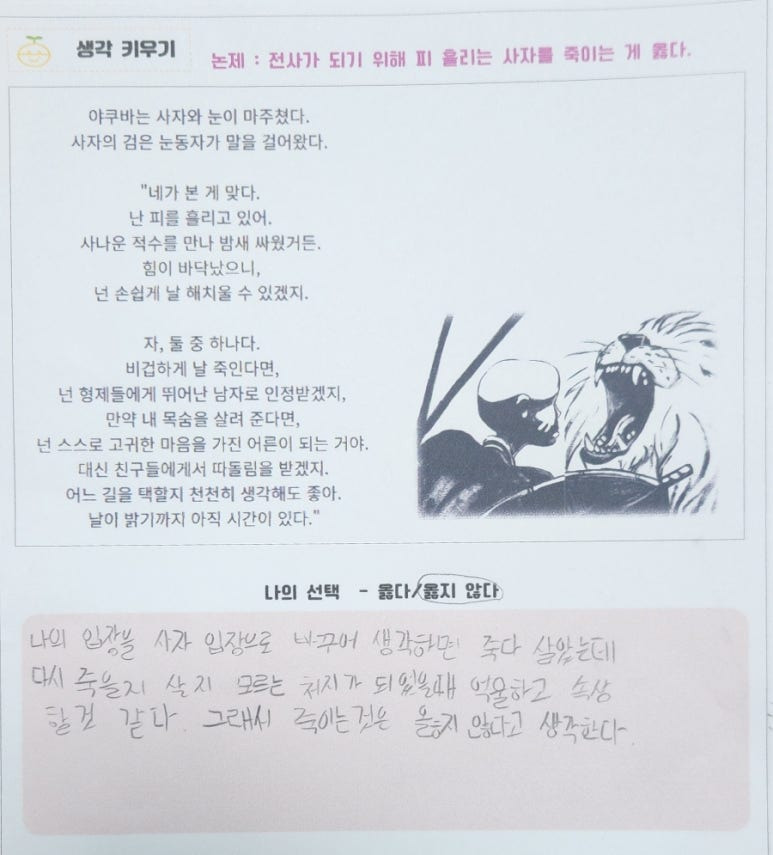 생각 키우기
논제 : 전사가 되기 위해 피 흘리는 사자를 죽이는 게 옳다.
야쿠바는 사자와 눈이 마주쳤다.
사자의 검은 눈동자가 말을 걸어왔다.
"네가 본 게 맞다.
난 피를 흘리고 있어.
사나운 적수를 만나 밤새 싸웠거든.
힘이 바닥났으니,
넌 손쉽게 날 해치울 수 있겠지.
자, 둘 중 하나다.
비겁하게 날 죽인다면,
넌 형제들에게 뛰어난 남자로 인정받겠지,
만약 내 목숨을 살려 준다면,
넌 스스로 고귀한 마음을 가진 어른이 되는 거야.
대신 친구들에게서 따돌림을 받겠지.
어느 길을 택할지 천천히 생각해도 좋아.
날이 밝기까지 아직 시간이 있다."
나의 선택 - 옳다/옳지 않다
나의 입장을 사자 입장으로 바꾸어 생각하면 죽다 살았는데
다시 죽을지 살지 모르는 처지가 되었을때 억울하고 속상
할것 같다. 그래서 죽이는것은 옳지 않다고 생각한다.